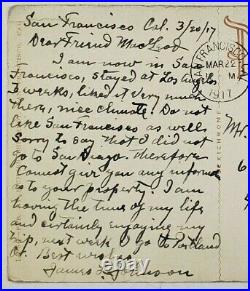 San Francisco Cal. 3/20/17
Dear Friend MacLeod
I am now in San
Francisco, stayed at Los Angeles
3 weeks, liked it very much
there, nice climate. Do not
like San Francisco as well.
Sorry to say that I did not
go to San Diego. Therefore
Cannot give you any inform
as to your property. I am
having the time of my life
and certainly enjoying my
trip, next week I go to Portland
Or. Best wishes
James Johnson
FRANCISCO
MAR 22
M
1917
Mr